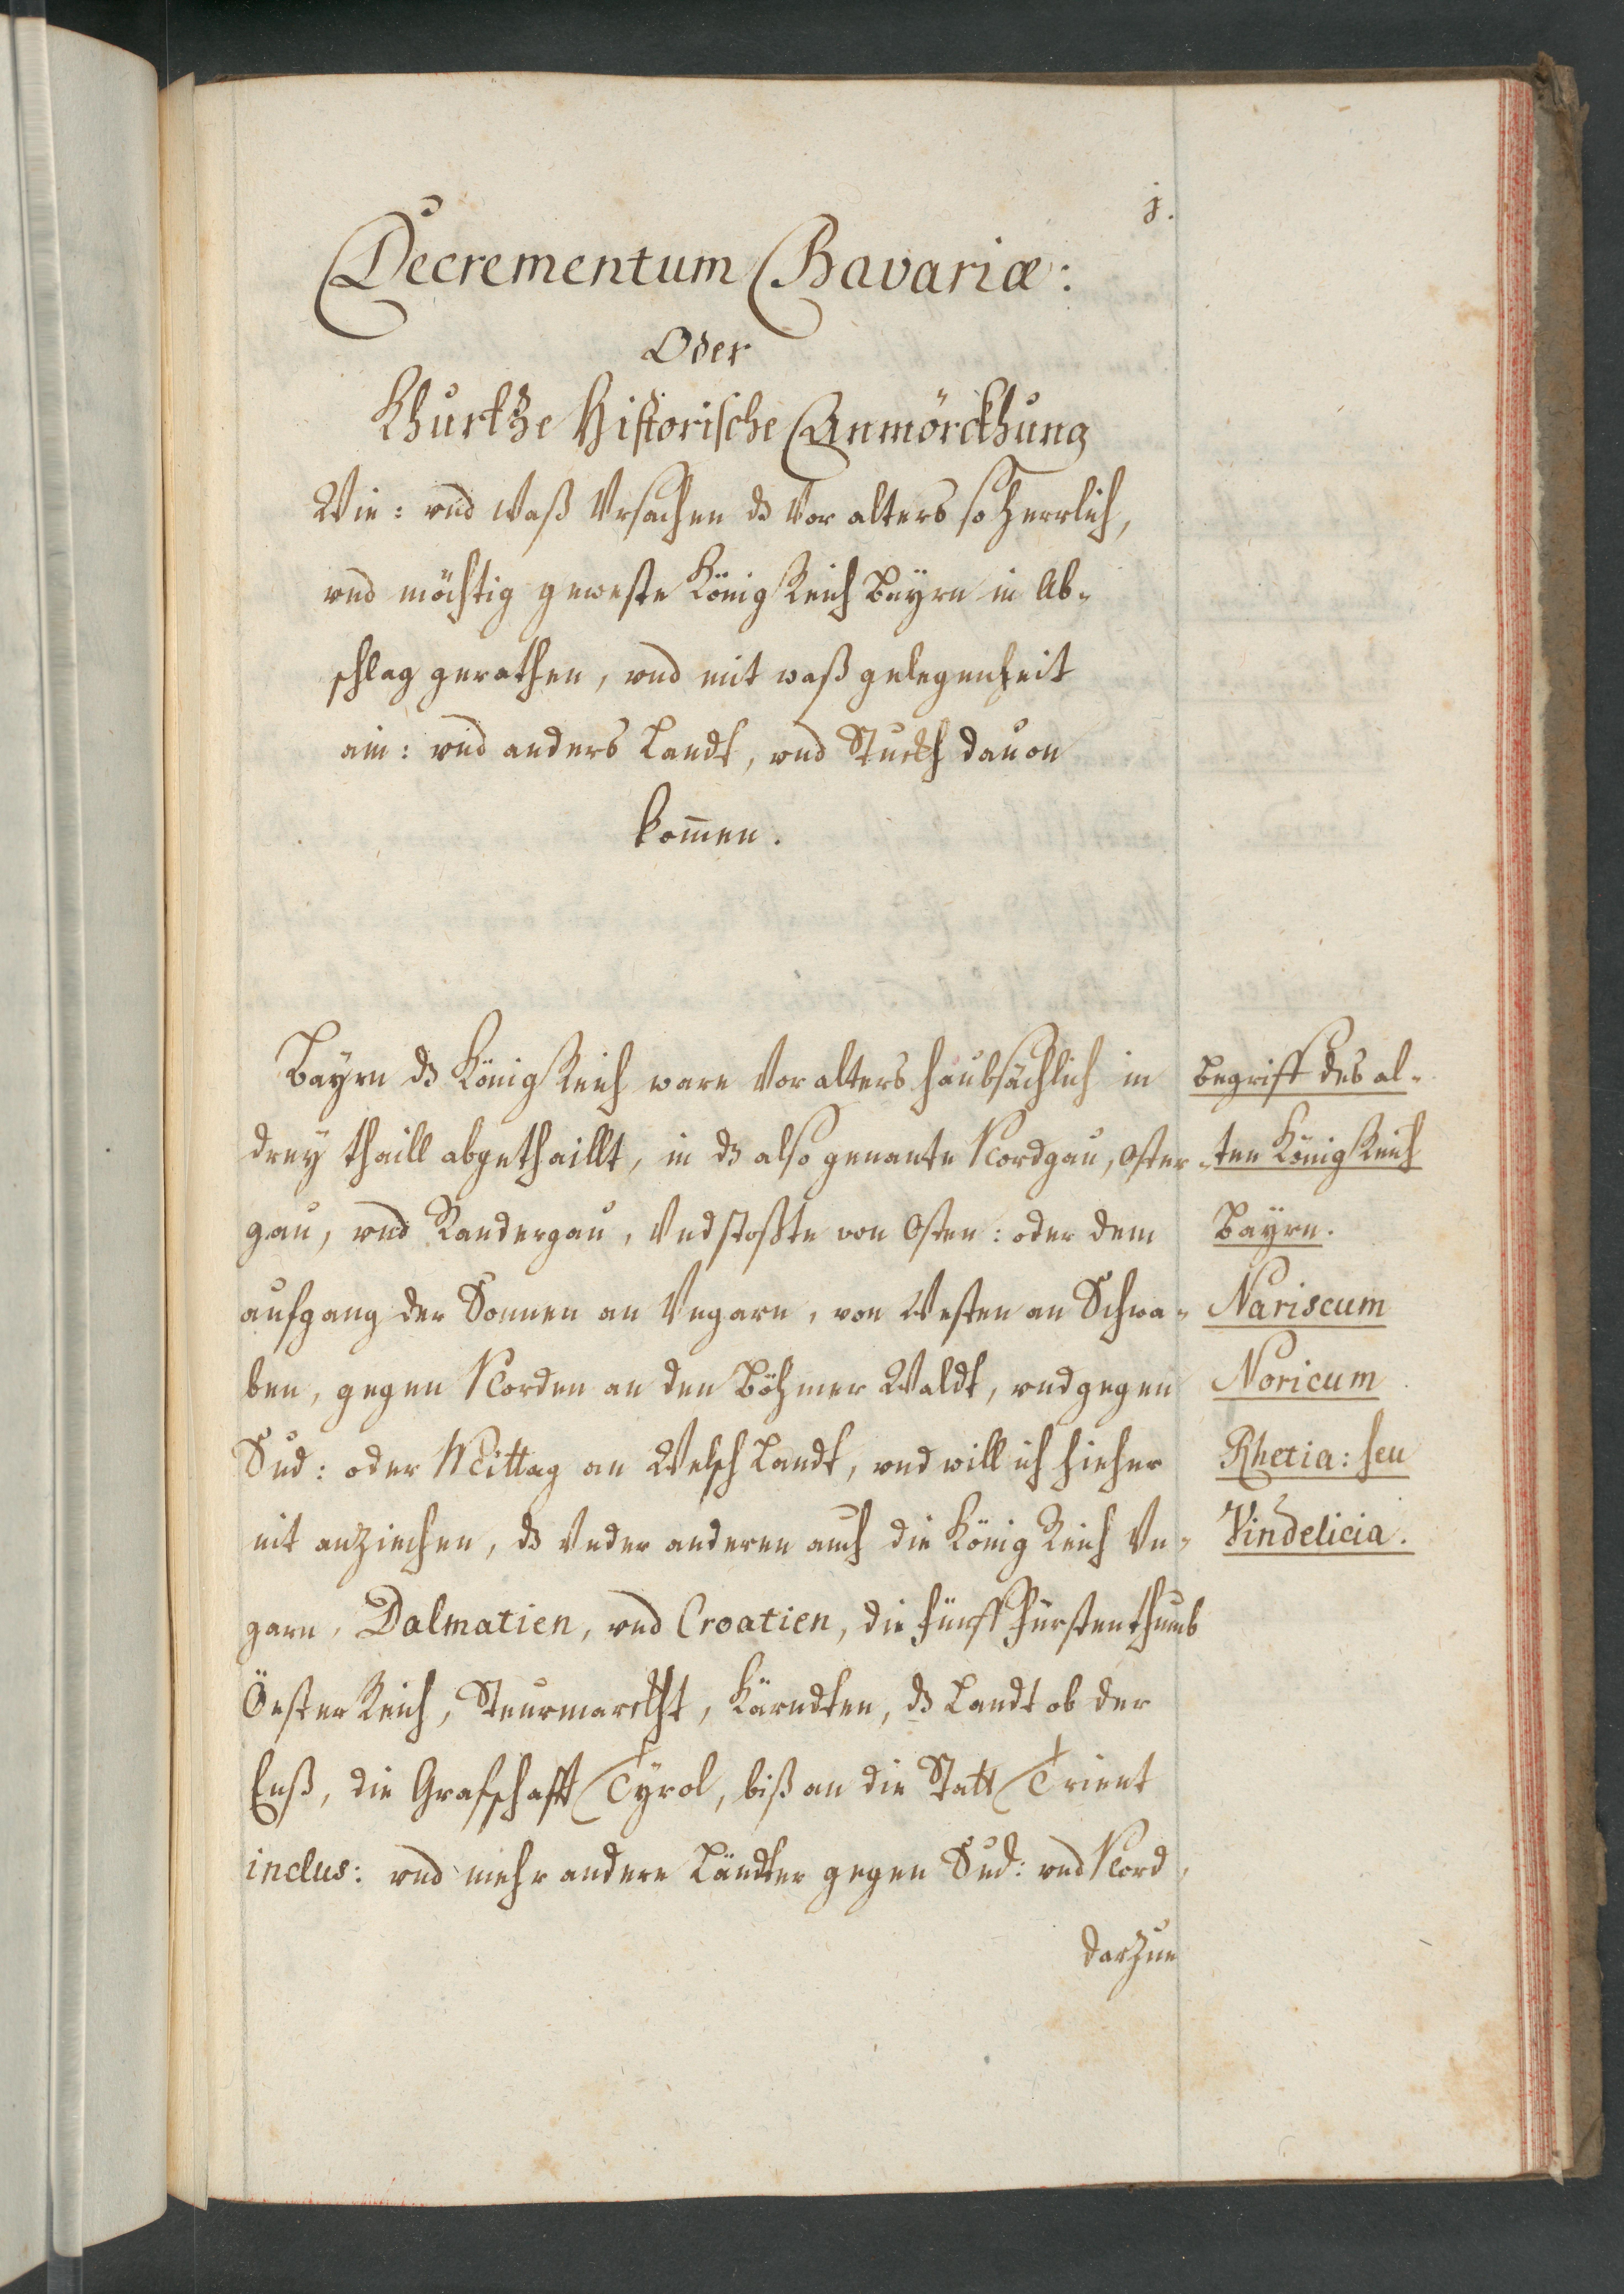 j.
Decrementum Bavariæ:
Oder
Khurtze Historische Anmörckhung
Wie: vnd waß Vrsachen ds Vor alters so herrlich,
vnd möchtig geweste König Reich Bayrn in Ab-
schlag gerathen, vnd mit waß gelegenheit
ain: vnd anders Landt, vnd Stuckh dauon
kom̄en.
Bayrn ds König Reich ware Vor alters haubsächlich in
drey thaill abgethaillt, in ds also genante Nordgau, Oster
gau, vnd Sandergau, Vnd stoßte von Osten: oder dem
aufgang der Sonnen an Vngarn, von Westen an Schwa-
ben, gegen Norden an den Böhmer Waldt, vnd gegen
Sud: oder Mittag an Welsch Landt, vnd will ich hieher
nit anziechen, ds Vnder anderen auch die König Reich Vn-
garn, Dalmatien, vnd Croatien, die fünff Fürstenthumb
Öster Reich, Steurmarckht, Kärndten, ds Landt ob der
Enß, die Grafschafft Tyrol, biß an die Statt Trient
inclus: vnd mehr andere Ländter gegen Sud: vnd Nord,
darzue
Begriff des al-
-ten König Reich
Bayrn.
Nariscum
Noricum
Rhetia: seu
Vindelicia.